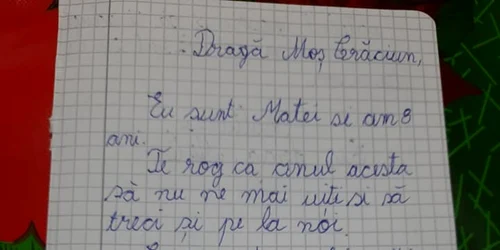 Dragă Moș Crăciun,
Eu sunt Matei si am 8
ani.
Te rog ca anul acesta
să nu ne mai uiti si să
treci și pe la noi.